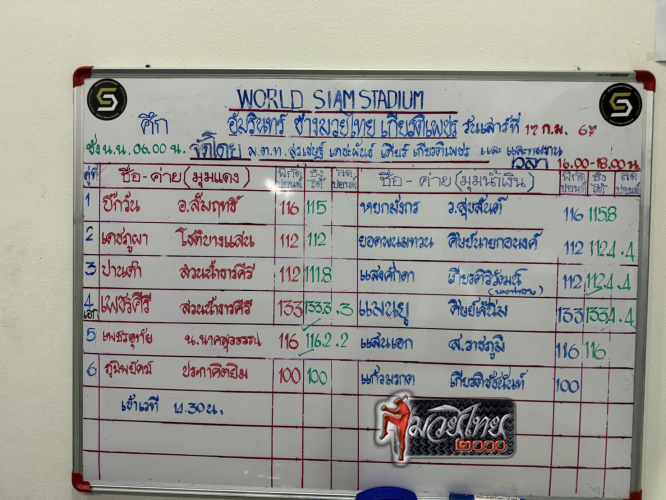 WORLD SIAM STADIUM
ศึก อัมรินทร์ ช่างมวยไทย เกียรติเพชร วันเสาร์ที่ 17 ก.พ. 67
ชั่ง น.น. 06.00 น. จัดโดย พ.ต.ท. เดชะพันธ์ เกียรติเพชร และ เวลา 16.00-18.00 น.
คู่ที่ ชื่อ-ค่าย (มุมแดง) พิกัด ปอนด์ ชั่งได้ ลดปอนด์ ชื่อ-ค่าย (มุมน้ำเงิน) พิกัด ปอนด์ ชั่งได้ ลดปอนด์
1 บิ๊กวัน อ.สัมฤทธิ์ 116 115 หยกมังกร ว.สุขสันต์ 116 115.8
2 เดชภูผา โชติบางแสน 112 112 ยอดพนมทวน ศิษย์นายกอนงค์ 112 112.4 .4
3 ปานดำ สวนน้ำธารคีรี 112 111.8 แสงศักดา เกียรติวิวัฒน์ 112 112.4 .4
4 เอก เพชรคีรี สวนน้ำธารคีรี 133 133.3 .3 แมนยู 133 133.4 .4
5 น.นาคสุวรรณ 116 116.2 .2 แสนเอก ส.ราชภูมิ 116 116
6 ภูมิพยัคฆ์ ประกาศิตยิม 100 100 แก้วมรกต เกียรติชัชนันท์ 100
เข้าเวที 14.30 น.
มวยไทย
๒๐๐๐